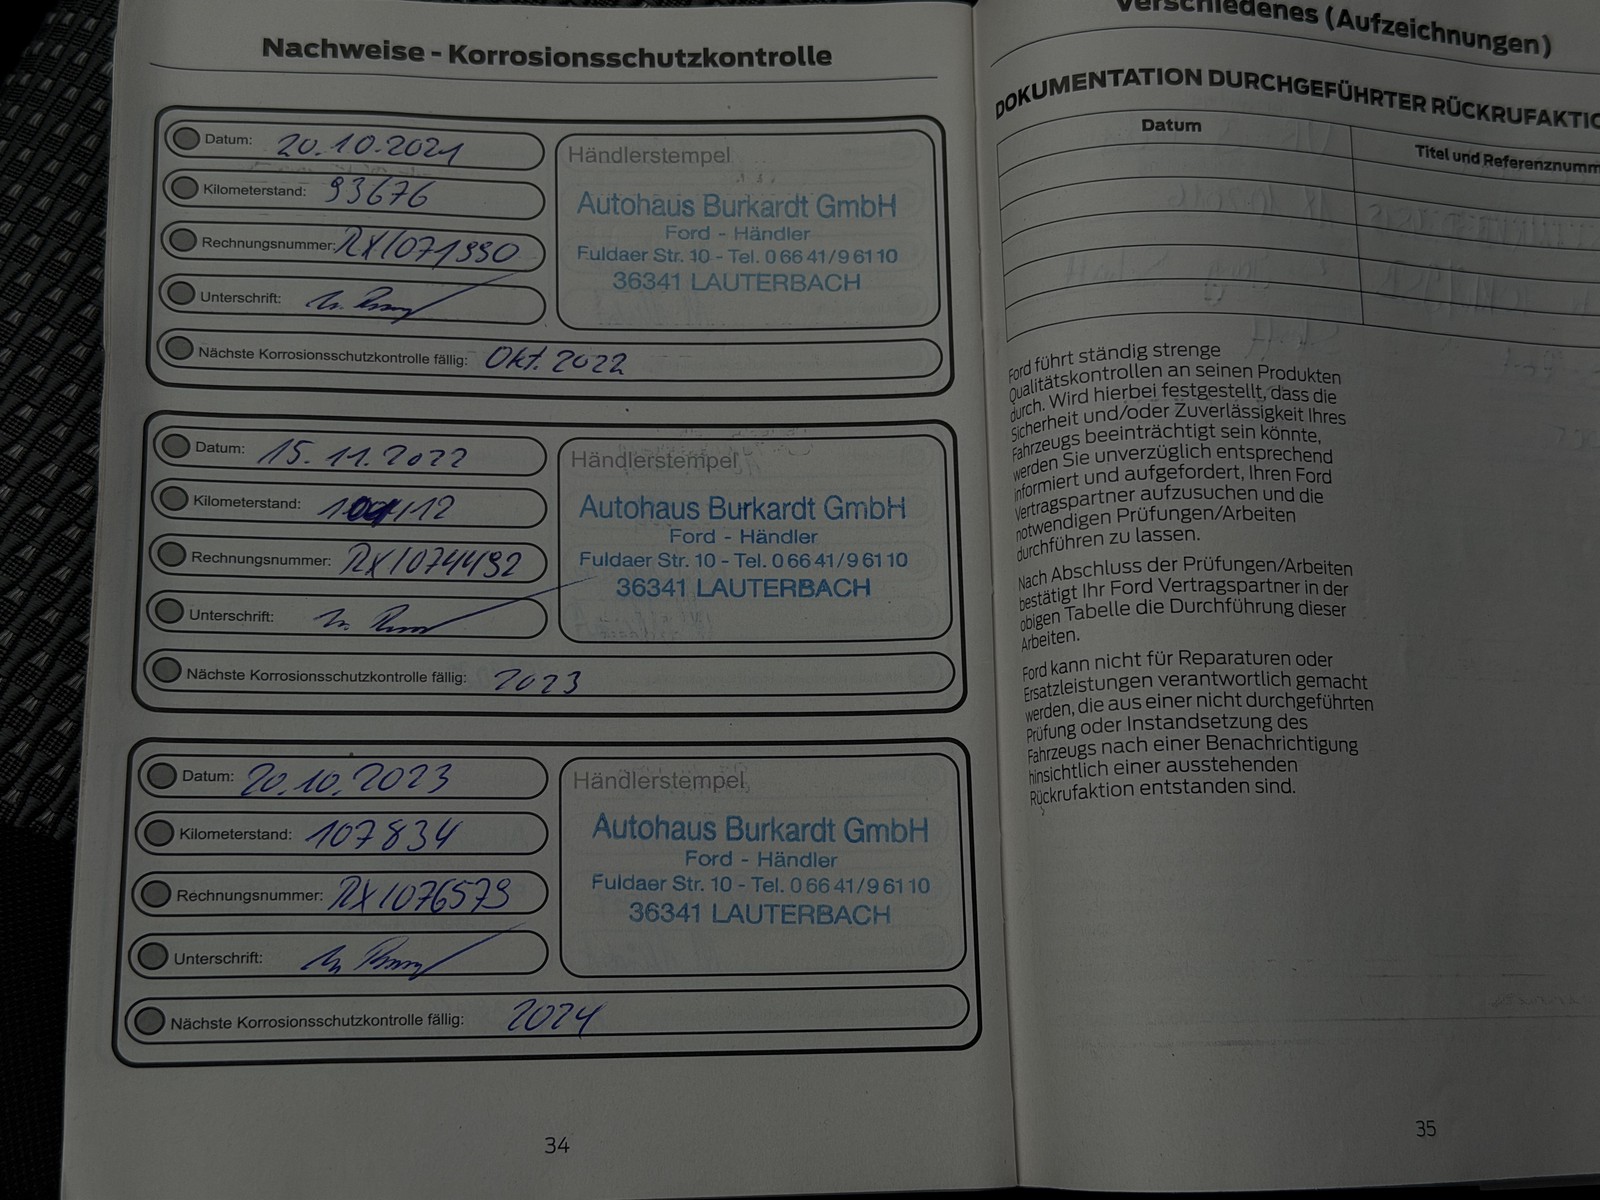 Nachweise - Korrosionsschutzkontrolle
Datum: 20.10.2021
Kilometerstand: 93676
Rechnungsnummer: RX1071990
Unterschrift:
Nächste Korrosionsschutzkontrolle fällig: Okt. 2022
Händlerstempel
Autohaus Burkardt GmbH
Ford - Händler
Fuldaer Str. 10 - Tel. 0 66 41/9 61 10
36341 LAUTERBACH
Datum: 15.11.2022
Kilometerstand:
Rechnungsnummer: RX1074492
Unterschrift:
Nächste Korrosionsschutzkontrolle fällig: 2023
Händlerstempel
Autohaus Burkardt GmbH
Ford - Händler
Fuldaer Str. 10 - Tel. 0 66 41/9 61 10
36341 LAUTERBACH
Datum: 20.10.2023
Kilometerstand: 107834
Rechnungsnummer: RX1076579
Unterschrift:
Nächste Korrosionsschutzkontrolle fällig: 2024
Händlerstempel
Autohaus Burkardt GmbH
Ford - Händler
Fuldaer Str. 10 - Tel. 0 66 41/9 61 10
36341 LAUTERBACH
34
Verschiedenes (Aufzeichnungen)
DOKUMENTATION DURCHGEFÜHRTER RÜCKRUFAKTIO
Datum
Titel und Referenznumm
Ford führt ständig strenge
Qualitätskontrollen an seinen Produkten
durch. Wird hierbei festgestellt, dass die
Sicherheit und/oder Zuverlässigkeit Ihres
Fahrzeugs beeinträchtigt sein könnte,
werden Sie unverzüglich entsprechend
informiert und aufgefordert, Ihren Ford
Vertragspartner aufzusuchen und die
notwendigen Prüfungen/Arbeiten
durchführen zu lassen.
Nach Abschluss der Prüfungen/Arbeiten
bestätigt Ihr Ford Vertragspartner in der
obigen Tabelle die Durchführung dieser
Arbeiten.
Ford kann nicht für Reparaturen oder
Ersatzleistungen verantwortlich gemacht
werden, die aus einer nicht durchgeführten
Prüfung oder Instandsetzung des
Fahrzeugs nach einer Benachrichtigung
hinsichtlich einer ausstehenden
Rückrufaktion entstanden sind.
35